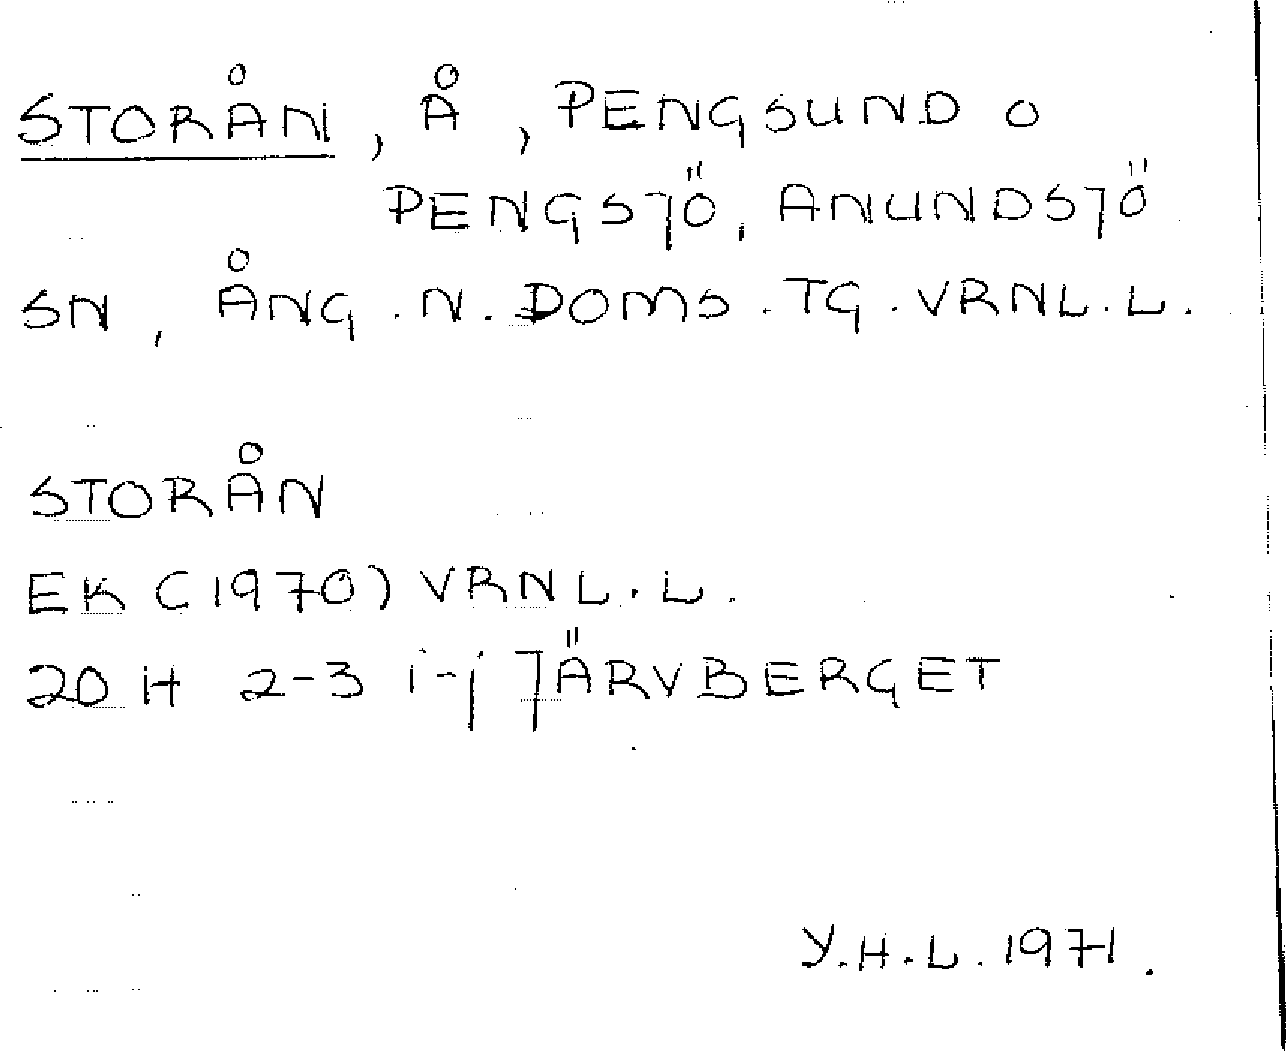 STORÅN, Å, PENGSUND O
PENGSJÖ, ANUNDSJÖ
SN, ÅNG. N. DOMS. TG. VRNL. L.
STORÅN
EK (1970) VRNL. L.
20 H 2-3 i-j JÄRVBERGET
Y.H.L. 1971.